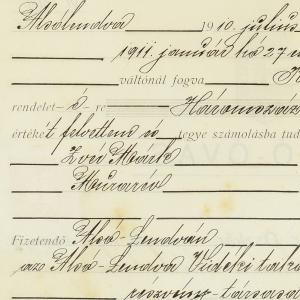 Alsólendva 1910. július
1911. január hó 27-
váltónál fogva
rendelet-é-re Háromszáz
értékét felvettem és tegye számolásba tud
Zver Márk
Muraria
Fizetendő Alsó-Lendván
az Alsó-Lendva Vidéki taka
részvény-társasá